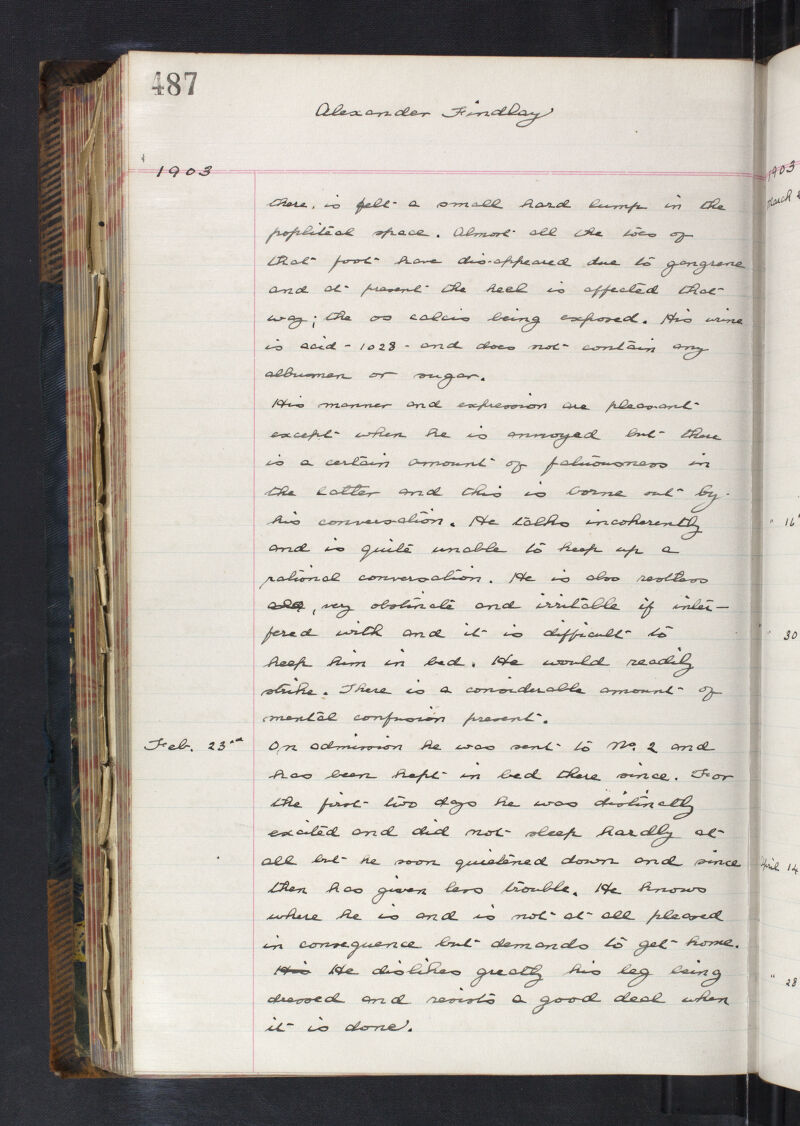 487
Alexander Findlay
1903
there is felt a small hard lump in the
popliteal space. Almost all the toes of
that foot have dis-appeared due to gangrene
and at present the heel is affected that
way; the os calcis being exposed. His urine
is acid - 1028 - and does not contain any
albumen or sugar.
His manner and expression are pleasant
except when he is annoyed but there
is a certain amount of fatuousness in
the latter and this is borne out by
his conversation. He talks incoherently
and is quite unable to keep up a
rational conversation. He is also restless
, very obstinate and irritable if inter-
fered with and it is difficult to
keep him in bed. He would readily
strike. There is a considerable amount of
mental confusion present.
Feb. 23rd On admission he was sent to No. 2 and
has been kept in bed there since. For
the first two days he was distinctly
excited and did not sleep hardly at
all but he soon quietened down and since
then has given less trouble. He knows
where he is and is not at all pleased
in consequence but demands to get home.
His He dislikes greatly his leg being
dressed and resists a good deal when
it is done.
1903
March
" 16
" 30
April 14
" 28